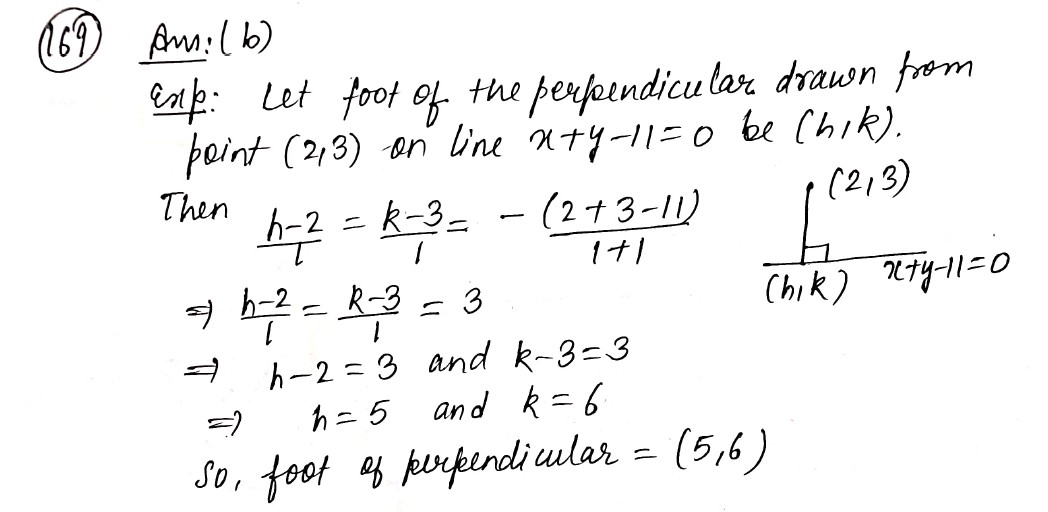 169 Ans: (b)
Exp: Let foot of the perpendicular drawn from
point (2,3) on line x+y-11=0 be (h,k).
Then (h-2)/1 = (k-3)/1 = -(2+3-11)/(1+1)
(2,3)
(h,k) x+y-11=0
⇒ (h-2)/1 = (k-3)/1 = 3
⇒ h-2=3 and k-3=3
⇒ h=5 and k=6
So, foot of perpendicular = (5,6)